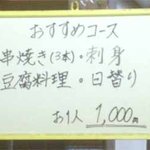 おすすめコース
串焼き(3本)・刺身
豆腐料理・日替り
お1人 1,000円